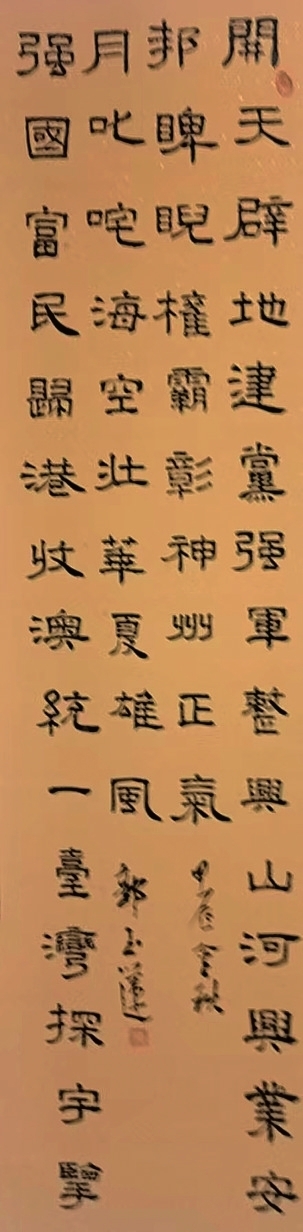 開天辟地建黨强軍整興山河興業安
邦睥睨權霸彰神州正氣
甲辰金秋
强國富民歸港收澳統一臺灣探宇擎
月叱咤海空壯華夏雄風
郭玉蓮